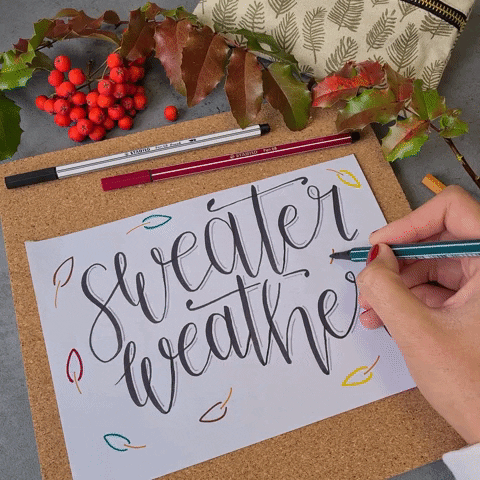 sweater
weathe
STABILO
STABILO